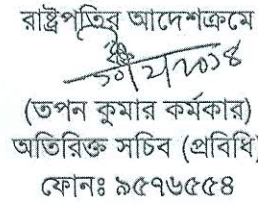 রাষ্ট্রপতির আদেশক্রমে
(তপন কুমার কর্মকার)
অতিরিক্ত সচিব (প্রবিধি)
ফোনঃ ৯৫৭৬৫৫৪